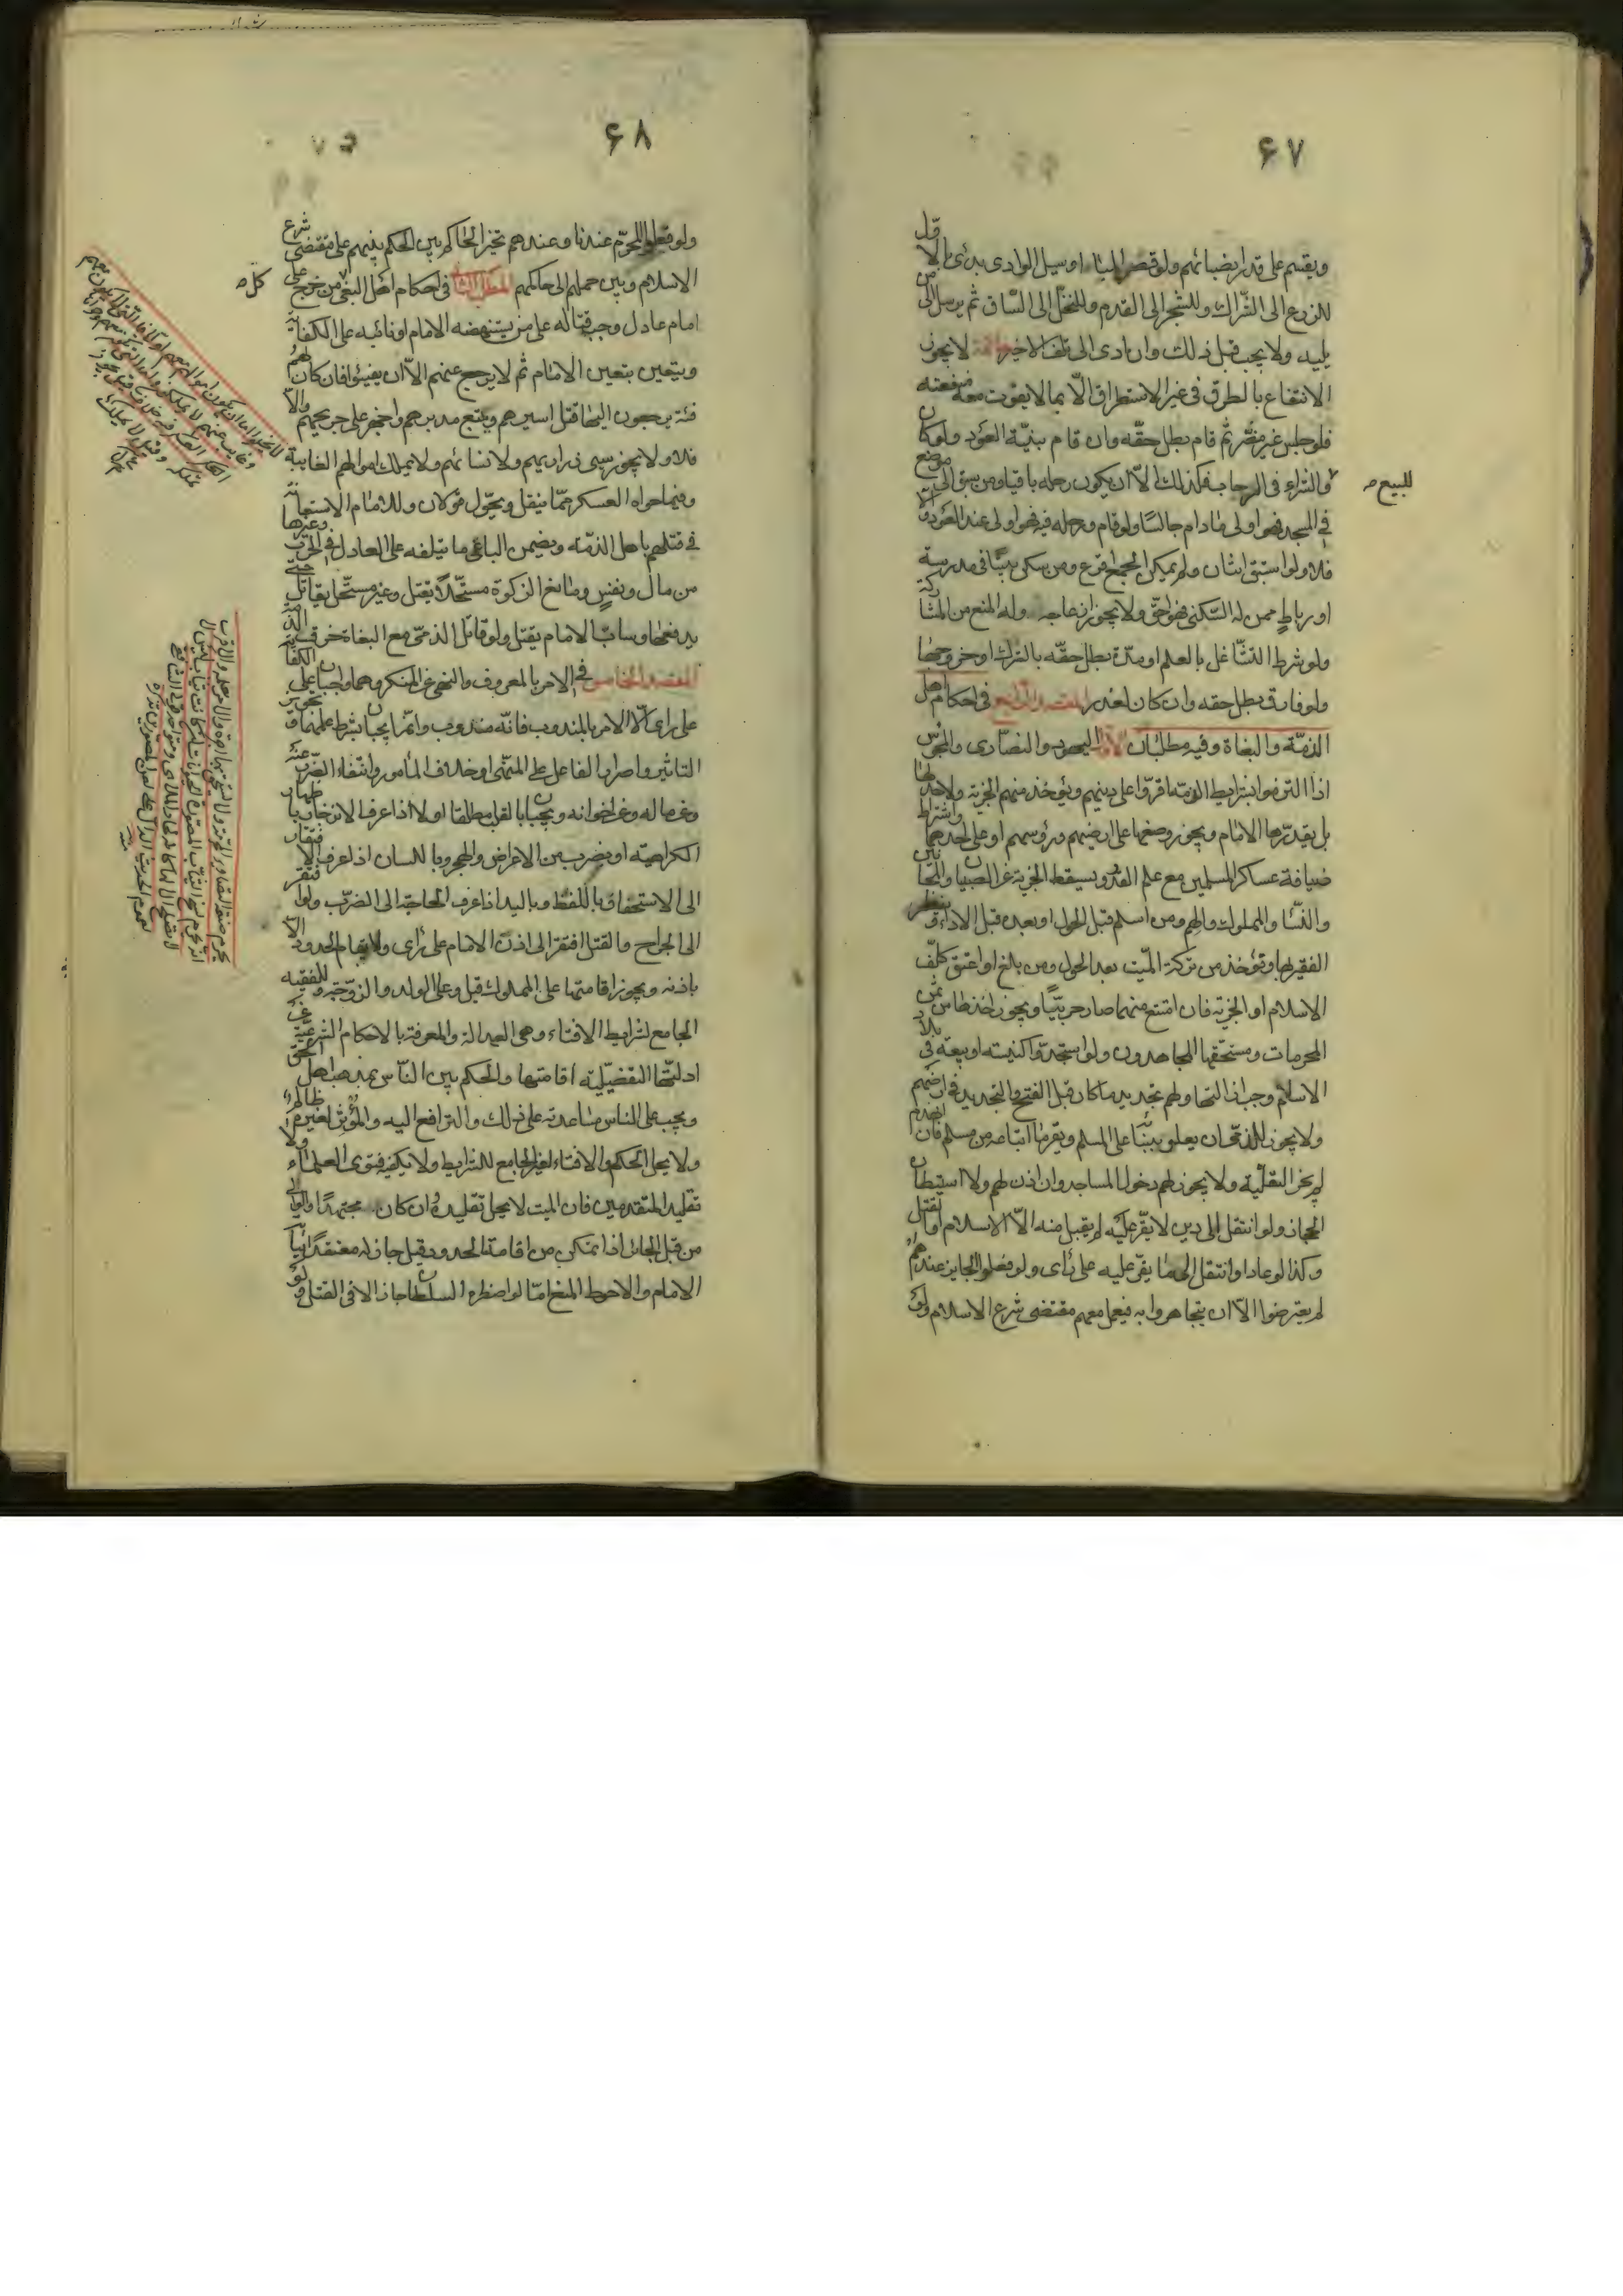 ۶۷
ويقسم على قدر انصبائهم ولو قصر المباح او سيل الوادى بدئ بالاول
للزرع الى الشراك وللشجر الى القدم وللنخل الى الساق ثم يرسل الى من
يليه ولا يجب قبل ذلك وان ادى الى تلف الاخير خاتمة لا يجوز
الانتفاع بالطرق فى غير الاستطراق الّا بما لا يفوت معه منفعته
فلو جلس غير مضر ثم قام بطل حقّه وان قام بنيّة العود ولو كان
للبيع ص
والشراء فى الرحاب فكذلك الّا ان يكون رحله باقيا ومن سبق الى موضع
فى المسجد فهو اولى مادام جالسًا ولو قام ورحله فيه فهو اولى عند العود والّا
فلا ولو استبق اثنان ولم يمكن الجمع اقرع ومن سكن بيتًا فى مدرسة
او رباطٍ ممن له السّكنى فهو احقّ ولا يجوز ازعاجه وله المنع من المشاركة
ولو شرط التشاغل بالعلم او مدّة بطل حقّه بالترك او خروجها
ولو فارق بطل حقه وان كان لعذر المقصد الرابع فى احكام اهل
الذمّة والبغاة وفيه مطلبان الاول اليهود والنصارى والمجوس
اذا التزموا بشرايط الذمة اقرّوا على دينهم ويؤخذ منهم الجزية ولا حد لها
بل يقدّرها الامام ويجوز وضعها على ارضيهم ورؤسهم او على احدهما واشتراط
ضيافة عساكر المسلمين مع علم القدر ويسقط الجزية عن الصبيان والمجانين
والنسا والمملوك والهم ومن اسلم قبل الحول او بعده قبل الاداء وينظر
الفقير بها وتؤخذ من تركة الميّت بعد الحول ومن بلغ او اعتق كلّف
الاسلام او الجزية فان امتنع منهما صار حربيّا ويجوز اخذها من ثمن
المحرمات ومستحقها المجاهدون ولو استجدّوا كنيسة او بيعة فى بلاد
الاسلام وجب ازالتها ولهم تجديد ما كان قبل الفتح والتجديد فى ارضهم
ولا يجوز للذمّى ان يعلو ببنائه على المسلم ويقر ما ابتاعه من مسلم فان انهدم
لم يجز التعلية ولا يجوز لهم دخول المساجد وان اذن لهم ولا استيطان
الحجاز ولو انتقل الى دين لا يقرّ عليه لم يقبل منه الّا الاسلام او القتل
وكذا لو عاد او انتقل الى ما يقرّ عليه على رأى ولو فعلوا الجايز عندهم
لم يعترضوا الّا ان يتجاهروا به فيعمل معهم مقتضى شرع الاسلام ولو
۶۸
ولو فعلوا المحرّم عندنا وعندهم تخير الحاكم بين الحكم بينهم على مقتضى شرع
الاسلام وبين حملهم الى حاكمهم المطلب الثانى فى احكام اهل البغى من خرج على
كل ص
امام عادل وجب قتاله على من يستنهضه الامام او نائبه على الكفاية
ويتعين بتعين الامام ثم لا يرجع عنهم الّا ان يفيئوا فان كان لهم
فئة يرجعون اليها قتل اسيرهم ويتبع مدبرهم واجهز على جريحهم والّا
فلا ولا يجوز سبى ذراريهم ولا نسائهم ولا يملك اموالهم الغايبة
وفيما حواه العسكر ممّا ينقل ويحوّل قولان وللامام الاستعانة
فى قتلهم باهل الذمة ويضمن الباغى ما يتلفه على العادل فى الحرب وغيرها
من مال ونفس ومانع الزكوة مستحلًا يقتل وغير مستحل يقاتل حتى
يدفعها وسابّ الامام يقتل ولو قاتل الذمّى مع البغاة خرق الذمة
المقصد الخامس فى الامر بالمعروف والنهى عن المنكر وهما واجبان على الكفاية
على رأى الّا الامر بالمندوب فانّه مندوب وانّما يجبان بشرط علمهما وتجويز
التاثير واصرار الفاعل على المنهى او خلاف المأمور وانتفاء الضرر عنه
وعن ماله وعن اخوانه ويجبان بالقلب مطلقا اولا اذا عرف الانزجار باظهار
الكراهية او بضرب من الاعراض والهجر وباللسان اذا عرف الافتقار
الى الاستخفاف باللفظ وباليد اذا عرف الحاجة الى الضرب ولو افتقر
الى الجراح والقتل افتقر الى اذن الامام على رأى ولا يقام الحدود الّا
باذنه ويجوز اقامتها على المملوك قيل وعلى الولد والزوجة وللفقيه
الجامع لشرايط الافتاء وهى العدالة والمعرفة بالاحكام الشرعيّة عن
ادلتها التفصيلية اقامتها والحكم بين الناس بمذهب اهل الحق
ويجب على الناس مساعدته على ذلك والترافع اليه والمؤثر لغيره ظالم
ولا يحل الحكم والافتاء لغير الجامع للشرايط ولا يكفيه فتوى العلماء ولا
تقليد المتقدمين فان الميت لا يحل تقليده وان كان مجتهدًا والوالى
من قبل الجائر اذا تمكن من اقامة الحدود قيل جاز له معتقدًا نيابة
الامام والاحوط المنع امّا لو اضطره السلطان جاز الا فى القتل ولو